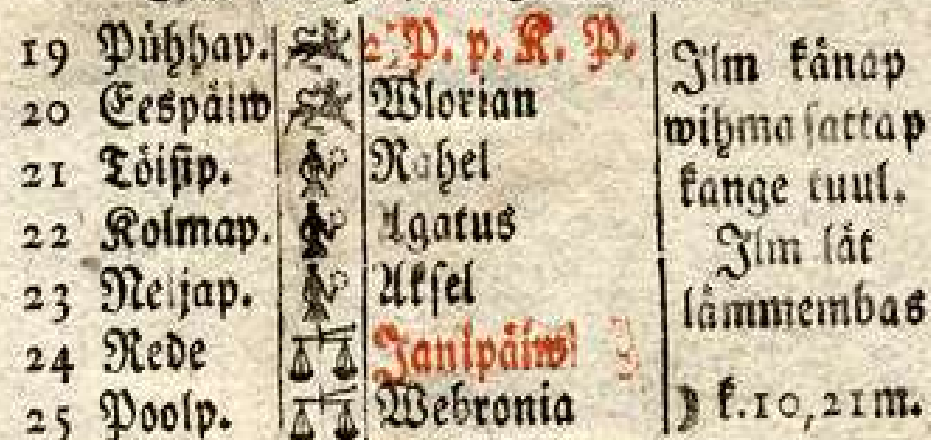 19 Pühhap. 2, P. p. K. P. Ilm känap
20 Eespäiw Wlorian wihma sattap
21 Töisip. Rahel kange tuul.
22 Kolmap. Agatus Ilm lät
23 Neljap. Aksel lämmembas
24 Rede Janipäiw
25 Poolp. Webronia ☽ k. 10, 21 m.